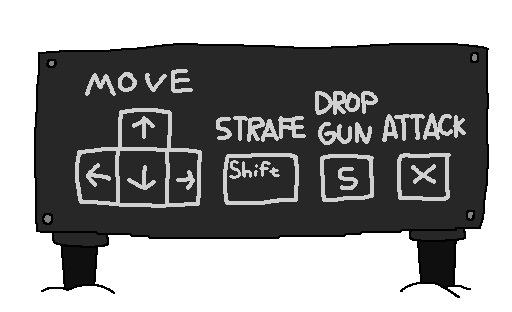 MOVE
STRAFE
Shift
DROP
GUN
S
ATTACK
X